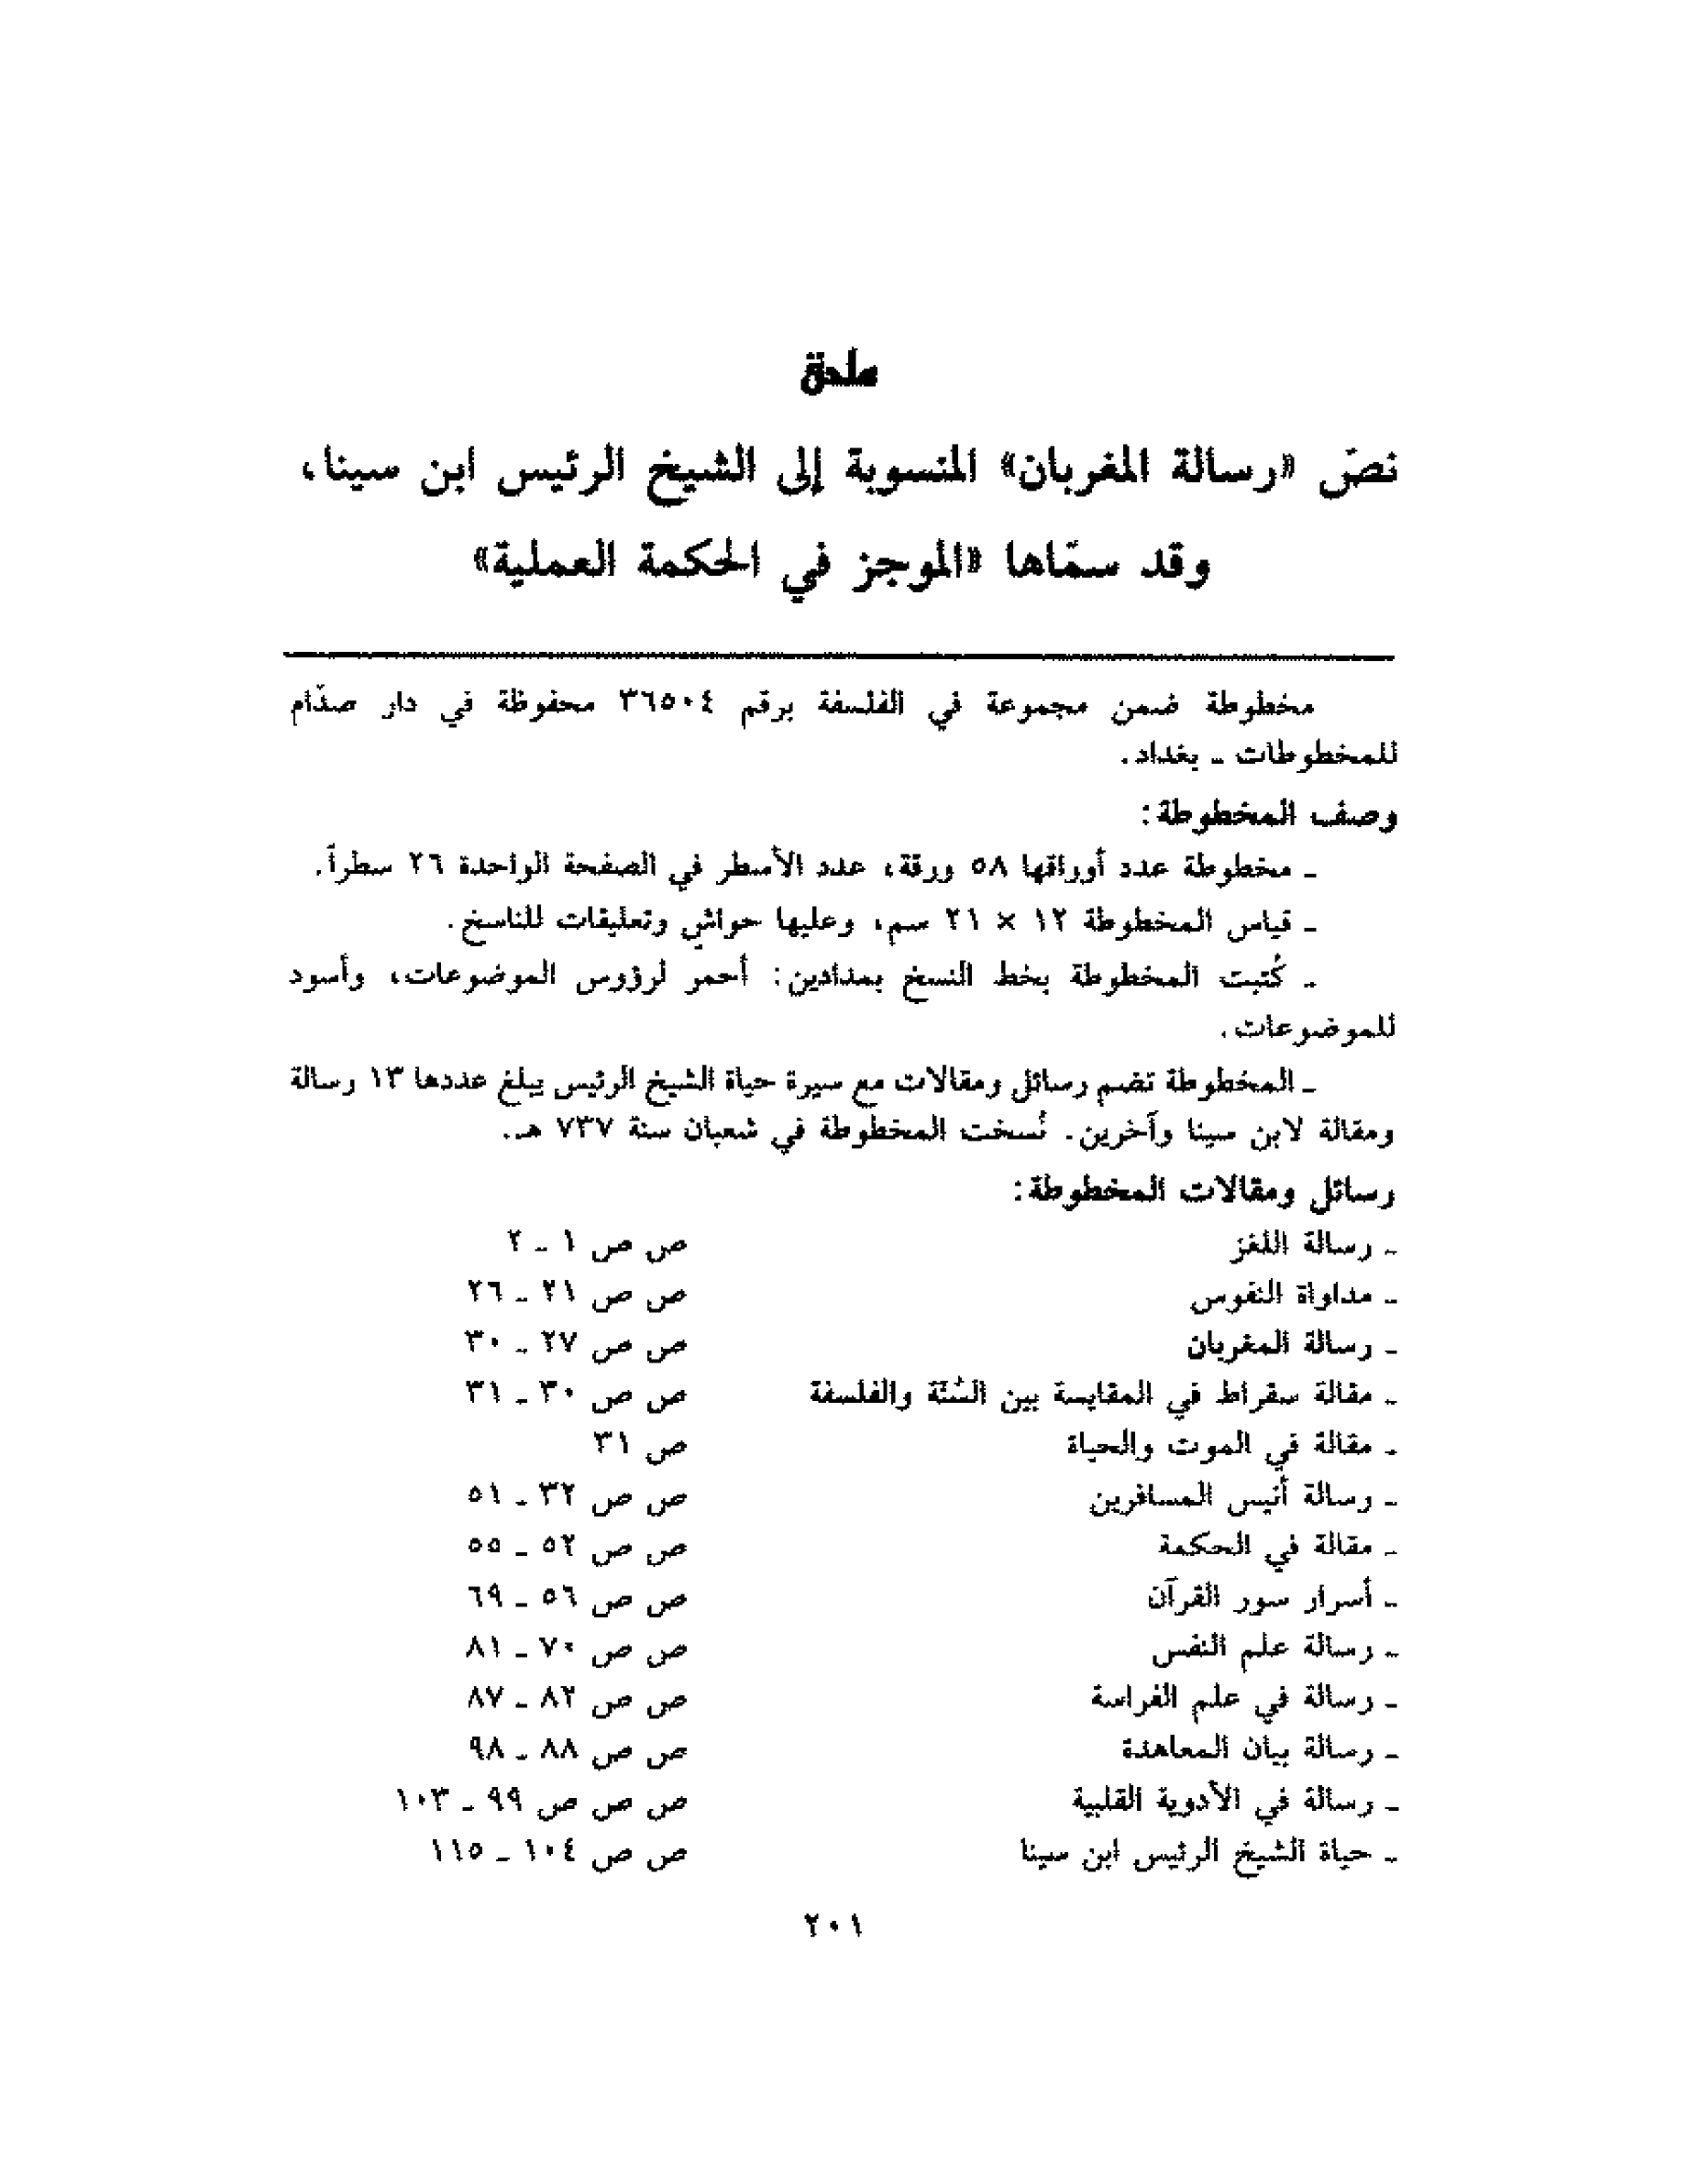 ملحق
نصّ «رسالة المغربان» المنسوبة إلى الشيخ الرئيس ابن سينا،
وقد سمّاها «الموجز في الحكمة العملية»
مخطوطة ضمن مجموعة في الفلسفة برقم ٣٦٥٠٤ محفوظة في دار صدّام
للمخطوطات ـ بغداد.
وصف المخطوطة:
ـ مخطوطة عدد أوراقها ٥٨ ورقة، عدد الأسطر في الصفحة الواحدة ٢٦ سطراً.
ـ قياس المخطوطة ١٢ × ٢١ سم، وعليها حواشٍ وتعليقات للناسخ.
ـ كُتبت المخطوطة بخط النسخ بمدادين: أحمر لرؤوس الموضوعات، وأسود
للموضوعات.
ـ المخطوطة تضم رسائل ومقالات مع سيرة حياة الشيخ الرئيس يبلغ عددها ١٣ رسالة
ومقالة لابن سينا وآخرين. نُسخت المخطوطة في شعبان سنة ٧٣٧ هـ.
رسائل ومقالات المخطوطة:
ـ رسالة اللغز ص ص ١ ـ ٢
ـ مداواة النفوس ص ص ٢١ ـ ٢٦
ـ رسالة المغربان ص ص ٢٧ ـ ٣٠
ـ مقالة سقراط في المقايسة بين السُنّة والفلسفة ص ص ٣٠ ـ ٣١
ـ مقالة في الموت والحياة ص ٣١
ـ رسالة أنيس المسافرين ص ص ٣٢ ـ ٥١
ـ مقالة في الحكمة ص ص ٥٢ ـ ٥٥
ـ أسرار سور القرآن ص ص ٥٦ ـ ٦٩
ـ رسالة علم النفس ص ص ٧٠ ـ ٨١
ـ رسالة في علم الفراسة ص ص ٨٢ ـ ٨٧
ـ رسالة بيان المعاهدة ص ص ٨٨ ـ ٩٨
ـ رسالة في الأدوية القلبية ص ص ص ٩٩ ـ ١٠٣
ـ حياة الشيخ الرئيس ابن سينا ص ص ١٠٤ ـ ١١٥
٢٠١